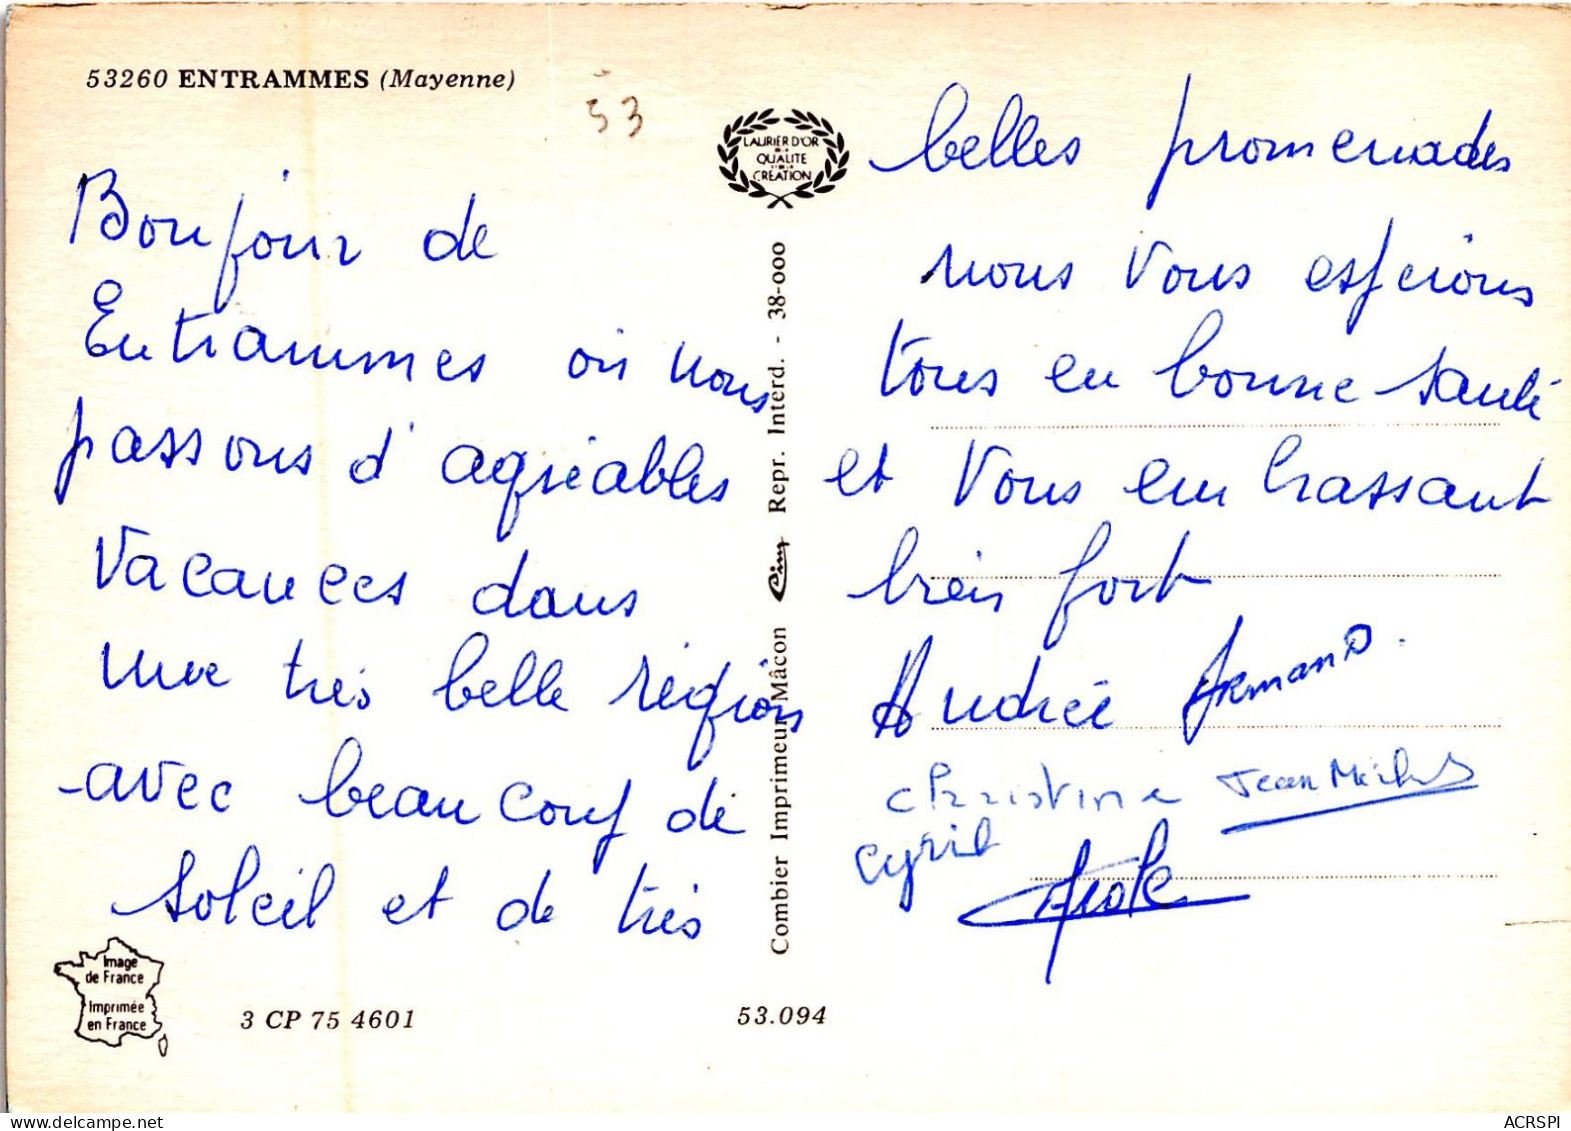 53260 ENTRAMMES (Mayenne)
53
LAURIER D'OR
QUALITE
CRÉATION
Bonjour de
Entrammes où nous
passons d'agréables
vacances dans
une très belle région
avec beaucoup de
soleil et de très
belles promenades
nous vous espérons
tous en bonne santé
et vous embrassant
bien fort
Andrée Armand.
Christine Jean Michel
Cyril
Combier Imprimeur Mâcon Cim Repr. Interd. - 38-000
Image
de France
Imprimée
en France
3 CP 75 4601
53.094
ACRSPI